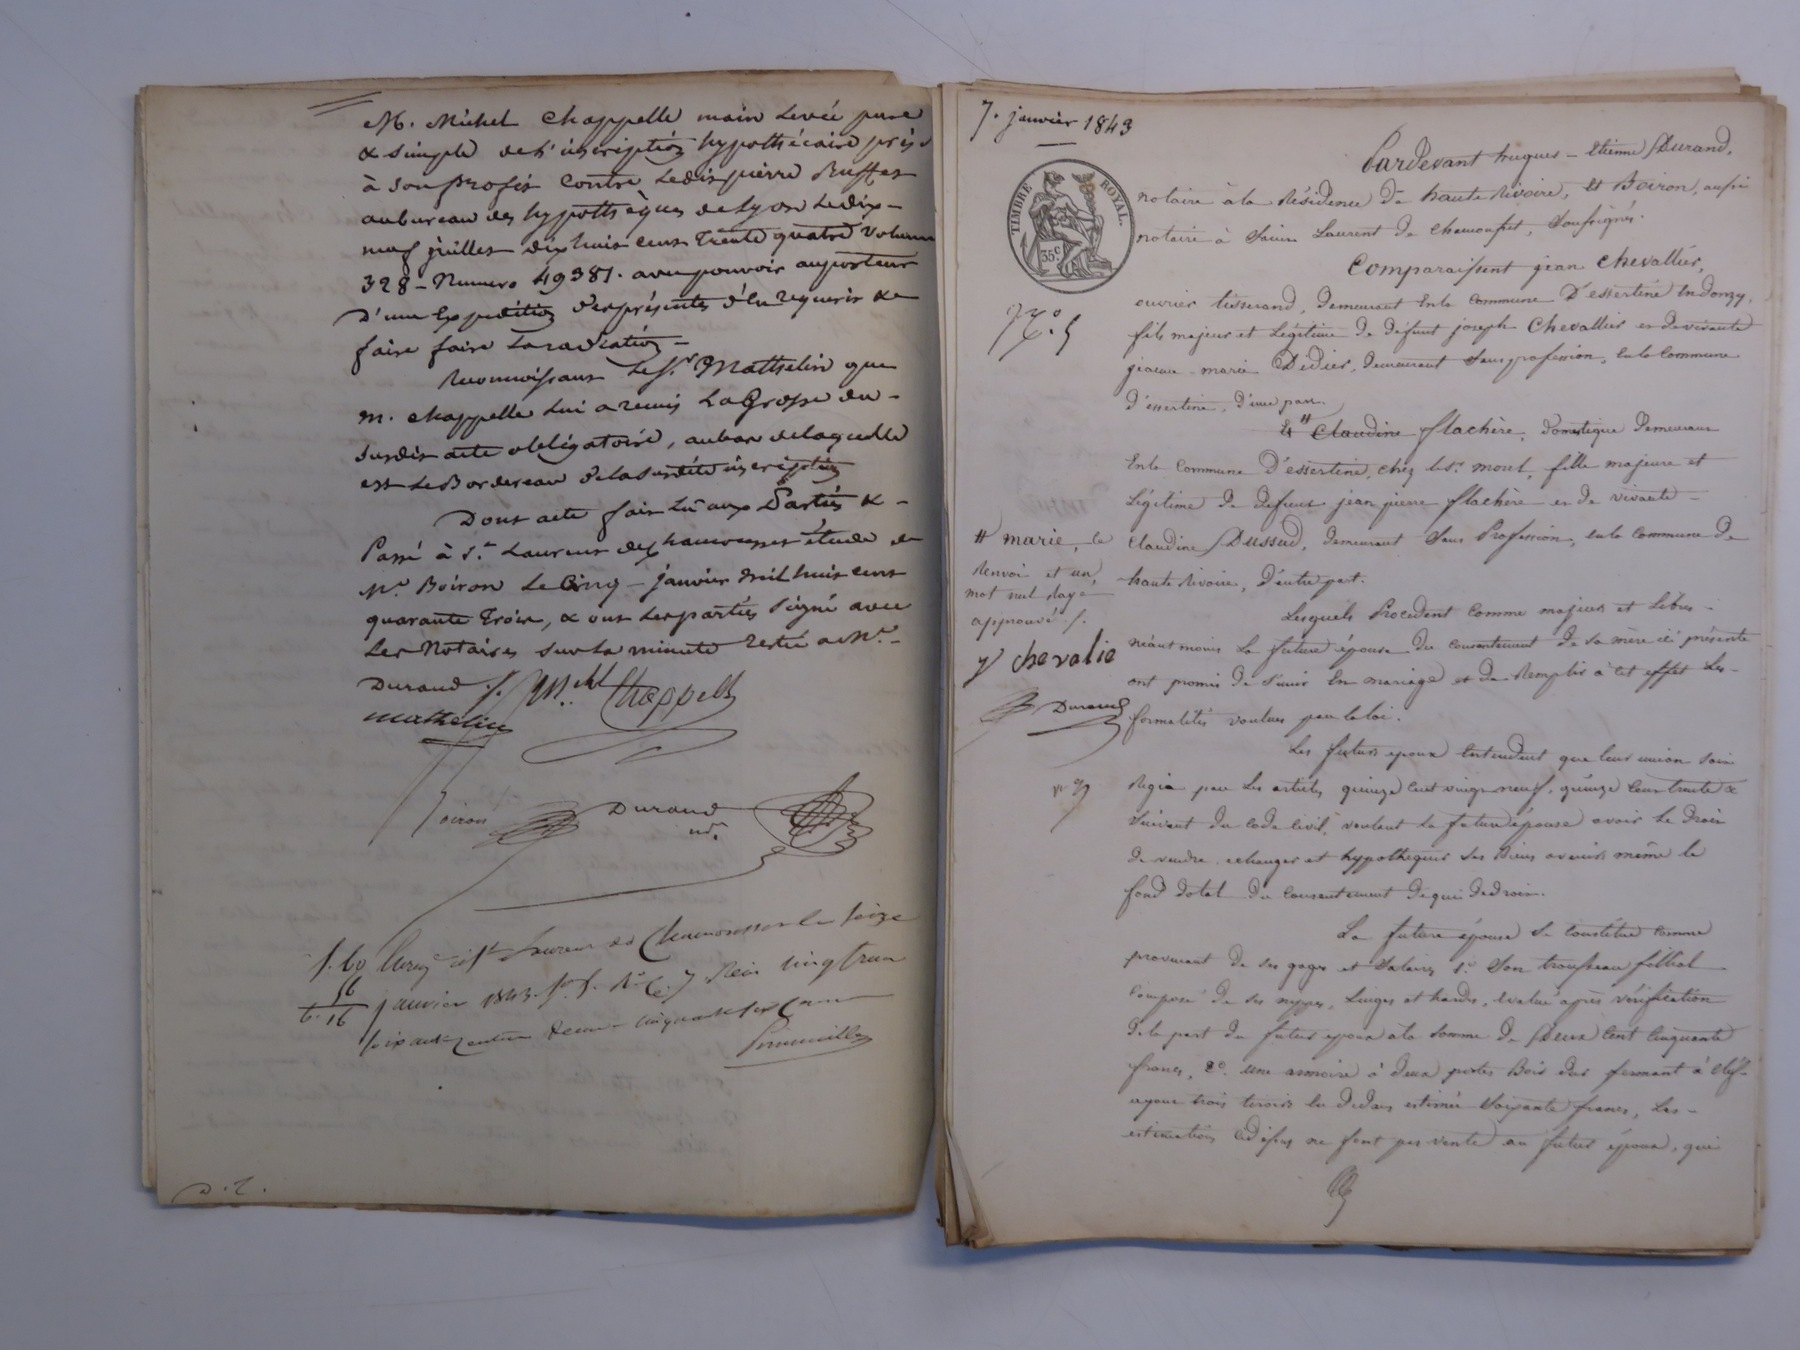 M. Michel Chappelle main levée pure
& simple de l'inscription hypothécaire prise
à son profit contre ledit pierre Ruffet
au bureau des hypothèques de Lyon le dix-
neuf juillet dix huit cent trente quatre volume
328 - Numero 49381. avec pouvoir au porteur
D'une Expedition des présentes d'En requerir &
faire faire la radiation -
Reconnoissant le Sr. Matthelin que
m. chappelle lui a remis La Grosse du -
susdit acte obligatoire, au bas de laquelle
est Le Bordereau de la susdite inscription
Dont acte fait Lu aux Parties & -
Passé à St. Laurent de chamousset étude de
Me. Boiron Le Cinq - janvier mil huit cent
quarante trois, & ont les parties signé avec
les Notaires sur la minute restée a Me. -
Durand Mchl Chappell
mathelin
Boiron Durand
nre.
f. 60 Enreg. à St Laurent de Chamousset le seize
56
6. 16
janvier 1843. fo. 5. Ro. C. 7 Reçu
D. 2.
7. janvier 1843
Pardevant hugues - Etienne Durand,
TIMBRE ROYAL
35c
notaire à la Résidence de haute Rivoire, Et Boiron, aussi
notaire à Saint Laurent de Chamousset, Soussignés.
Comparaissent jean Chevallier,
ouvrier tisserand, demeurant En la Commune D'essertine En donzy,
fils majeur et Légitime de défunt joseph Chevallier et de vivante
jeanne - marie Didier, demeurant Sans profession, En la Commune
d'essertine, d'une part.
Et # Claudine flachère, domestique demeurant
En la Commune D'essertine, chez le Sr. mout, fille majeure et
Légitime de defunt jean pierre flachère et de vivante -
# marie, le
Claudine Dussud, demeurant Sans Profession, En la Commune de
Renvoi et un
haute Rivoire, D'autre part.
mot nul rayé
approuvés.
Lesquels Procédent Comme majeurs et Libres -
néantmoins La future épouse du Consentement de Sa mère ici présente
chevalie
ont promis de S'unir En mariage et de Remplir à Cet effet Les -
Durand
formalités voulues par la loi.
Les futurs époux Entendent que leur union Soit
Régie par Les articles quinze Cent vingt neuf, quinze Cent trente &
Suivant du Code Civil, voulant La future épouse avoir Le Droit
de vendre, echanger et hypothequer Ses Biens avenir même le
fond dotal du Consentement de qui de droit.
La future épouse Se Constitue Comme
provenant de Ses gages et Salaires 1o. Son trousseau filial
Composé de Ses nippes, Linges et hardes, évalué après vérification
de la part du futur époux à la Somme de Deux Cent Cinquante
francs, 2o. une armoire à deux portes Bois dur fermant à Clef -
ayant trois tiroirs En dedans estimée Soixante francs, Les -
estimations Cidessus ne font pas vente au futur époux, qui